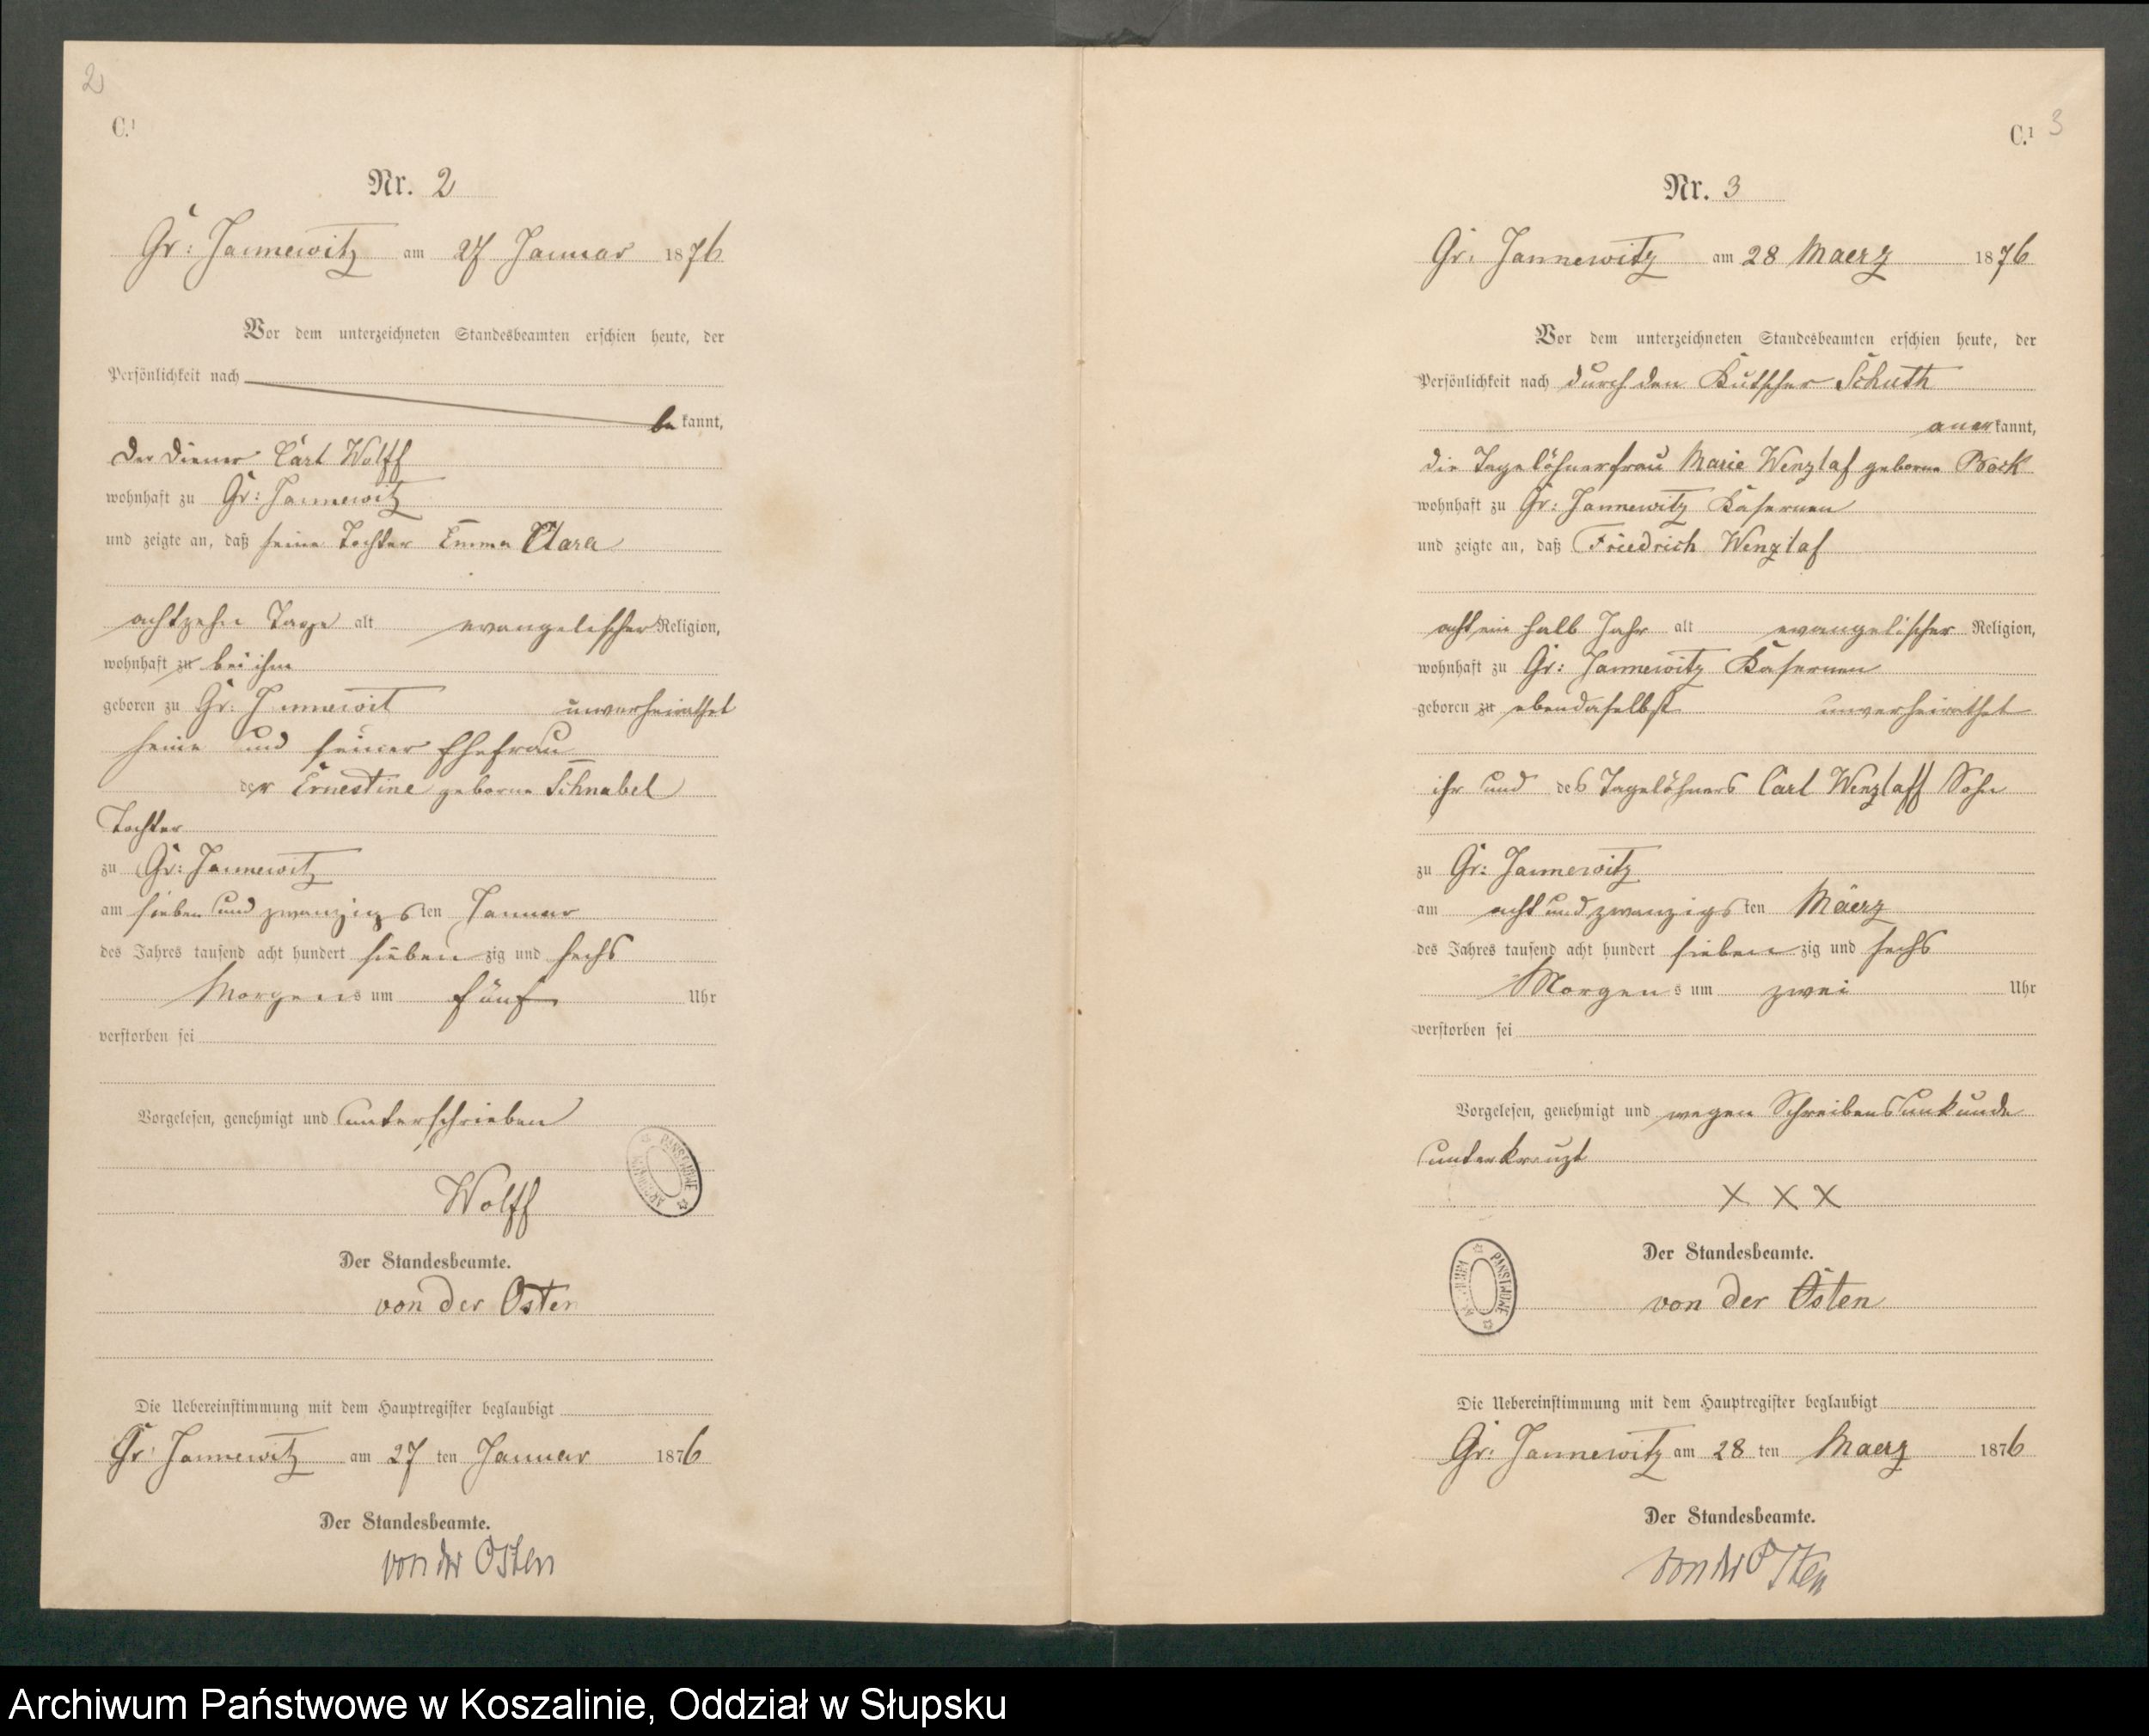 2
C.¹
Nr. 2
Gr: Jannewitz am 27 Januar 1876
Vor dem unterzeichneten Standesbeamten erschien heute, der
Persönlichkeit nach
be kannt,
der Diener Carl Wolff
wohnhaft zu Gr: Jannewitz
und zeigte an, daß seine Tochter Emma Clara
achtzehn Tage alt evangelischer Religion,
wohnhaft zu bei ihm
geboren zu Gr: Jannewitz unverheirathet
seine und seiner Ehefrau
der Ernestine geborne Schnabel
Tochter
zu Gr: Jannewitz
am sieben und zwanzigsten Januar
des Jahres tausend acht hundert siebenzig und sechs
Morgens um fünf Uhr
verstorben sei
Vorgelesen, genehmigt und unterschrieben
Wolff
Der Standesbeamte.
von der Osten
Die Uebereinstimmung mit dem Hauptregister beglaubigt
Gr: Jannewitz am 27 ten Januar 1876
Der Standesbeamte.
von der Osten
3
C.¹
Nr. 3
Gr. Jannewitz am 28 Maerz 1876
Vor dem unterzeichneten Standesbeamten erschien heute, der
Persönlichkeit nach durch den Kutscher Schuth
anerkannt,
die Tagelöhnerfrau Marie Wenzlaf geborne Bock
wohnhaft zu Gr: Jannewitz Kasernen
und zeigte an, daß Friedrich Wenzlaf
acht ein halb Jahr alt evangelischer Religion,
wohnhaft zu Gr: Jannewitz Kasernen
geboren zu ebendaselbst unverheirathet
ihr und des Tagelöhners Carl Wenzlaff Sohn
zu Gr: Jannewitz
am acht und zwanzigsten Maerz
des Jahres tausend acht hundert siebenzig und sechs
Morgens um zwei Uhr
verstorben sei
Vorgelesen, genehmigt und wegen Schreibensunkunde
unterkreuzt
X X X
Der Standesbeamte.
von der Osten
Die Uebereinstimmung mit dem Hauptregister beglaubigt
Gr: Jannewitz am 28 ten Maerz 1876
Der Standesbeamte.
von der Osten
Archiwum Państwowe w Koszalinie, Oddział w Słupsku